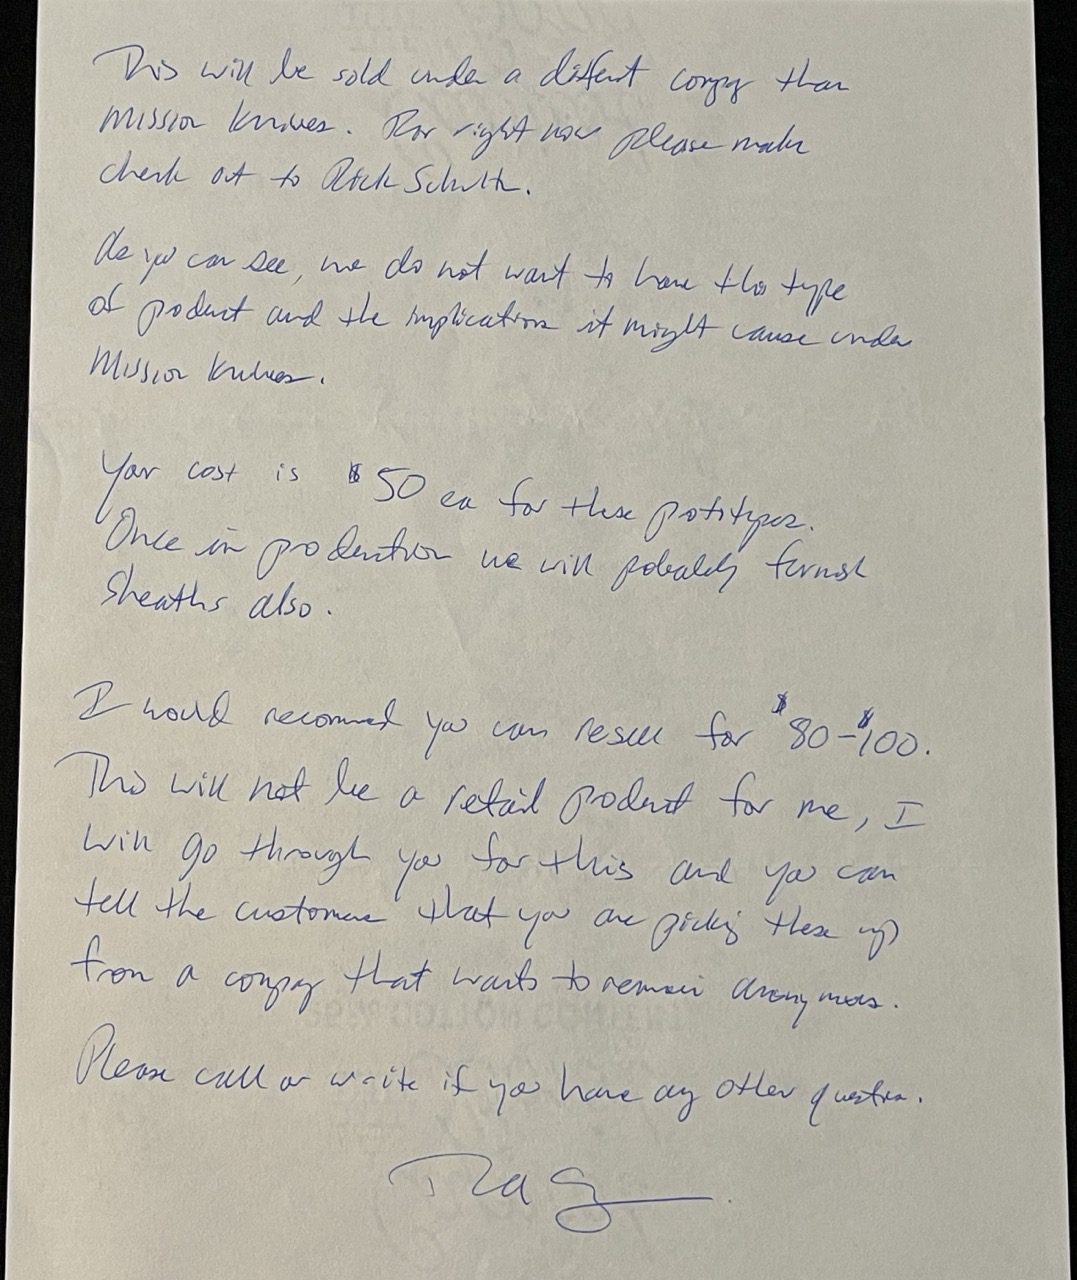 This will be sold under a diffent compy than
Mission Knives. For right now please make
check out to Rick Schultz.
As you can see, we do not want to have this type
of product and the implications it might cause under
Mission Knives.
Your cost is $50 ea for these prototypes.
Once in production we will probably furnish
Sheaths also.
I would recommed you can resell for $80-$100.
This will not be a retail product for me, I
will go through you for this and you can
tell the customers that you are picking these up
from a compy that wants to remain anonymous.
Please call or write if you have any other question.